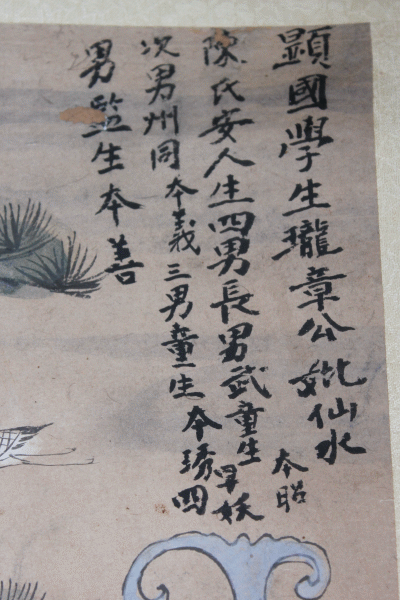 顯國學生瓏章公妣仙水
陳氏安人生四男長男武童生本昭早妖
次男州同本義三男童生本琇四
男監生本善